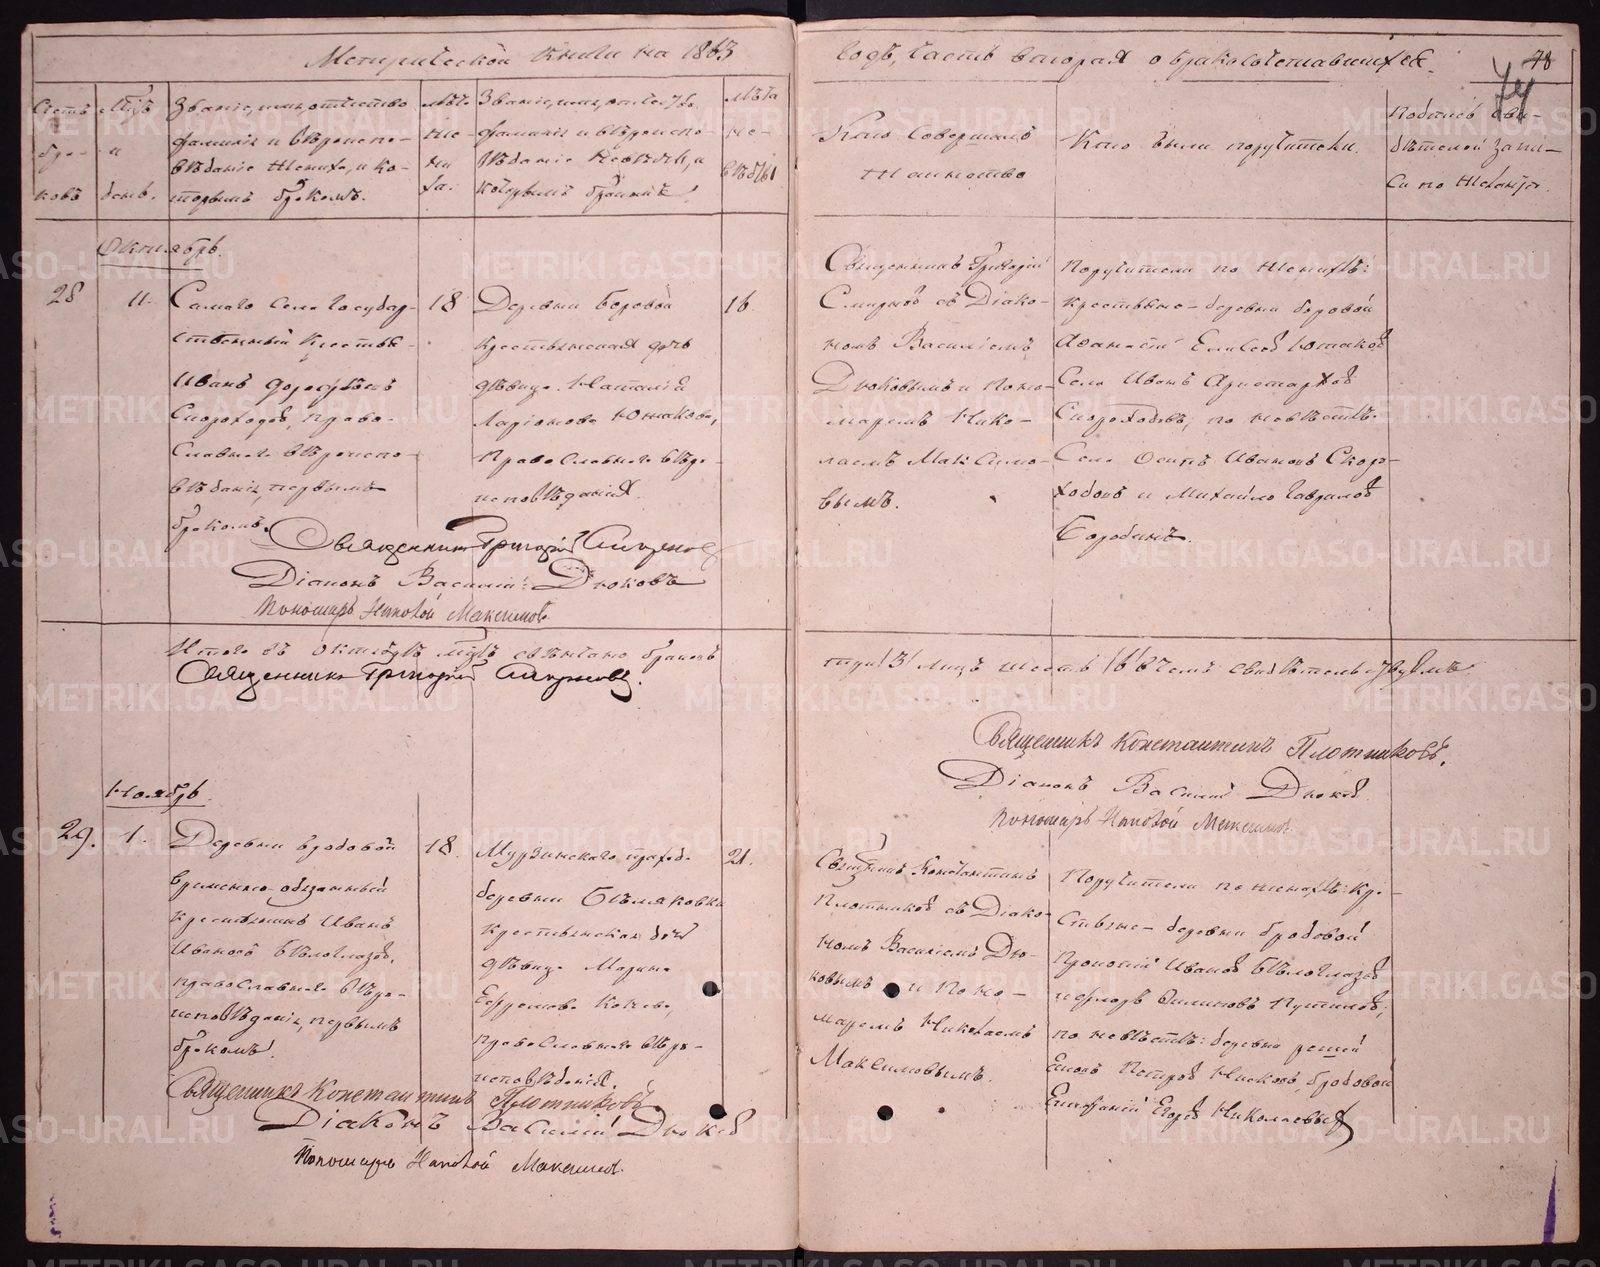 Метрической книги на 1863
годъ, часть вторая о бракосочетавшихся.
78
74
Счетъ
бра-
ковъ
Мцъ
и
день.
Званіе, имя, отчество
фамилія и вѣроиспо-
вѣданіе жениха, и ко-
торымъ бракомъ.
Лѣта
же-
ни
ха.
Званіе, имя, отчество,
фамилія и вѣроиспо-
вѣданіе невѣсты, и
которымъ бракомъ
Лѣта
не-
вѣсты
Кто совершалъ
таинство
Кто были поручители.
Подпись сви-
дѣтелей запи-
си по желанію.
Октябрь.
28
11.
Самаго села государ-
ственный крестья-
Иванъ Дорофѣевъ
Скороходовъ, право-
славнаго вѣроиспо-
вѣданія, первымъ
бракомъ.
18
Деревни Боровой
крестьянская дочь
дѣвица Наталія
Ларіонова Южакова,
православнаго вѣро-
исповѣданія.
16
Священникъ Григорій
Смирновъ съ Діако-
номъ Василіемъ
Дюковымъ и Поно-
маремъ Нико-
лаемъ Максимо-
вымъ.
Поручители по женихѣ:
крестьяне- деревни боровой
Аѳанасій Елисеевъ Южаковъ
Села Иванъ Аристарховъ
Скороходовъ; по невѣстѣ:
Села Осипъ Ивановъ Скоро-
ходовъ и Михайло Гавриловъ
Бородинъ.
Священникъ Григорій Смирновъ
Діаконъ Василій Дюковъ
Пономарь Николай Максимовъ
Итого въ октябрѣ мцѣ свѣнчано браковъ
три /3/ лицъ шесть /6/ въ чемъ свидѣтельствуемъ
Священникъ Григорій Смирновъ.
Священникъ Константинъ Плотниковъ.
Діаконъ Василій Дюковъ
Пономарь Николай Максимовъ
Ноябрь
29.
1.
Деревни бродовой
временно-обязанный
крестьянинъ Иванъ
Ивановъ Бѣлоглазовъ,
православнаго вѣро-
исповѣданія, первымъ
бракомъ.
18.
Мурзинскаго прихода
деревни Бѣляковки
крестьянская дочь
дѣвица Марина
Ефремова Конева,
православнаго вѣро-
исповѣданія.
21.
Священникъ Константинъ
Плотниковъ съ Діако-
номъ Василіемъ Дю-
ковымъ и Поно-
маремъ Николаемъ
Максимовымъ.
Поручители по женихѣ: кре-
стьяне- деревни бродовой
Прокопій Ивановъ Бѣлоглазовъ
и Филиповъ Путиловъ,
по невѣстѣ: деревни
Петровъ бродовой
Епифаній Егоровъ Николаевыхъ
Священникъ Константинъ Плотниковъ
Діаконъ Василій Дюковъ
Пономарь Николай Максимовъ.